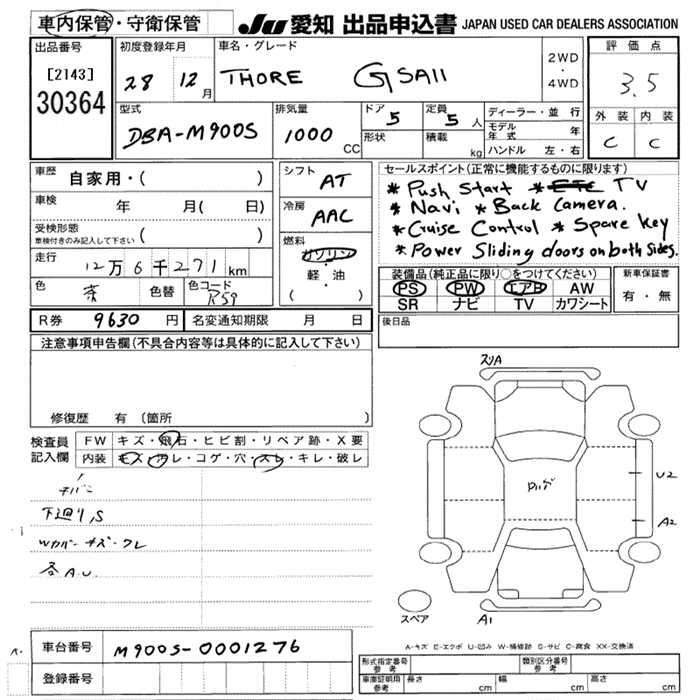 車内保管・守衛保管
JU 愛知 出品申込書 JAPAN USED CAR DEALERS ASSOCIATION
出品番号
[2143]
30364
初度登録年月
28 12月
車名・グレード
THORE G SAII
2WD
・
4WD
評価点
3.5
外装 内装
C C
型式
DBA-M900S
排気量
1000 CC
ドア 5
形状
定員 5人
積載 kg
ディーラー・並行
モデル年式 年
ハンドル 左・右
車歴
自家用・( )
車検 年 月( 日)
受検形態
車検付きのみ記入して下さい ( )
走行
12万6千271km
色 茶 色替 色コード R59
シフト
AT
冷房
AAC
燃料
ガソリン
軽・油
( )
セールスポイント(正常に機能するものに限ります)
* Push Start * ETC TV
* Navi * Back Camera.
* Cruise Control * Spare key
* Power Sliding doors on both sides.
装備品(純正品に限り○をつけてください)
PS PW エアB AW
SR ナビ TV カワシート
新車保証書
有・無
R券 9630円 名変通知期限 月 日
後日品
注意事項申告欄(不具合内容等は具体的に記入して下さい)
修復歴 有 (箇所 )
検査員記入欄
FW キズ・飛石・ヒビ割・リペア跡・X要
内装 キズ・汚レ・コゲ・穴・スレ・キレ・破レ
下廻り,S
Wカバーキズ・ワレ
各A.U
スリA
U2
A2
スペア
A1
A-キズ E-エクボ U-凹み W-補修跡 S-サビ C-腐食 XX-交換済
車台番号 M900S-0001276
登録番号
形式指定番号 参考
類別区分番号 参考
車庫証明用 参考 長さ cm 幅 cm 高さ cm